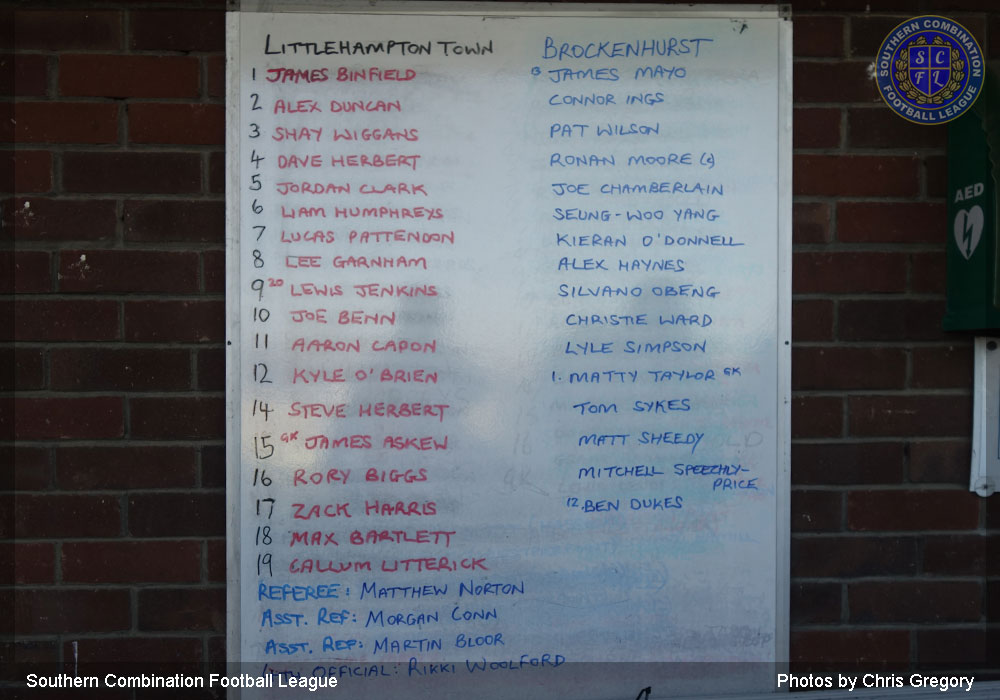 LITTLEHAMPTON TOWN BROCKENHURST
1 JAMES BINFIELD 13 JAMES MAYO
2 ALEX DUNCAN CONNOR INGS
3 SHAY WIGGANS PAT WILSON
4 DAVE HERBERT RONAN MOORE (c)
5 JORDAN CLARK JOE CHAMBERLAIN
6 LIAM HUMPHREYS SEUNG-WOO YANG
7 LUCAS PATTENDON KIERAN O'DONNELL
8 LEE GARNHAM ALEX HAYNES
9 20 LEWIS JENKINS SILVANO OBENG
10 JOE BENN CHRISTIE WARD
11 AARON CAPON LYLE SIMPSON
12 KYLE O'BRIEN 1. MATTY TAYLOR GK
14 STEVE HERBERT TOM SYKES
15 GK JAMES ASKEW MATT SHEEDY
16 RORY BIGGS MITCHELL SPEECHLY-
PRICE
17 ZACK HARRIS 12. BEN DUKES
18 MAX BARTLETT
19 CALLUM LITTERICK
REFEREE: MATTHEW NORTON
ASST. REF: MORGAN CONN
ASST. REF: MARTIN BLOOR
4TH OFFICIAL: RIKKI WOOLFORD
SOUTHERN COMBINATION
SCFL
FOOTBALL LEAGUE
AED
Southern Combination Football League
Photos by Chris Gregory